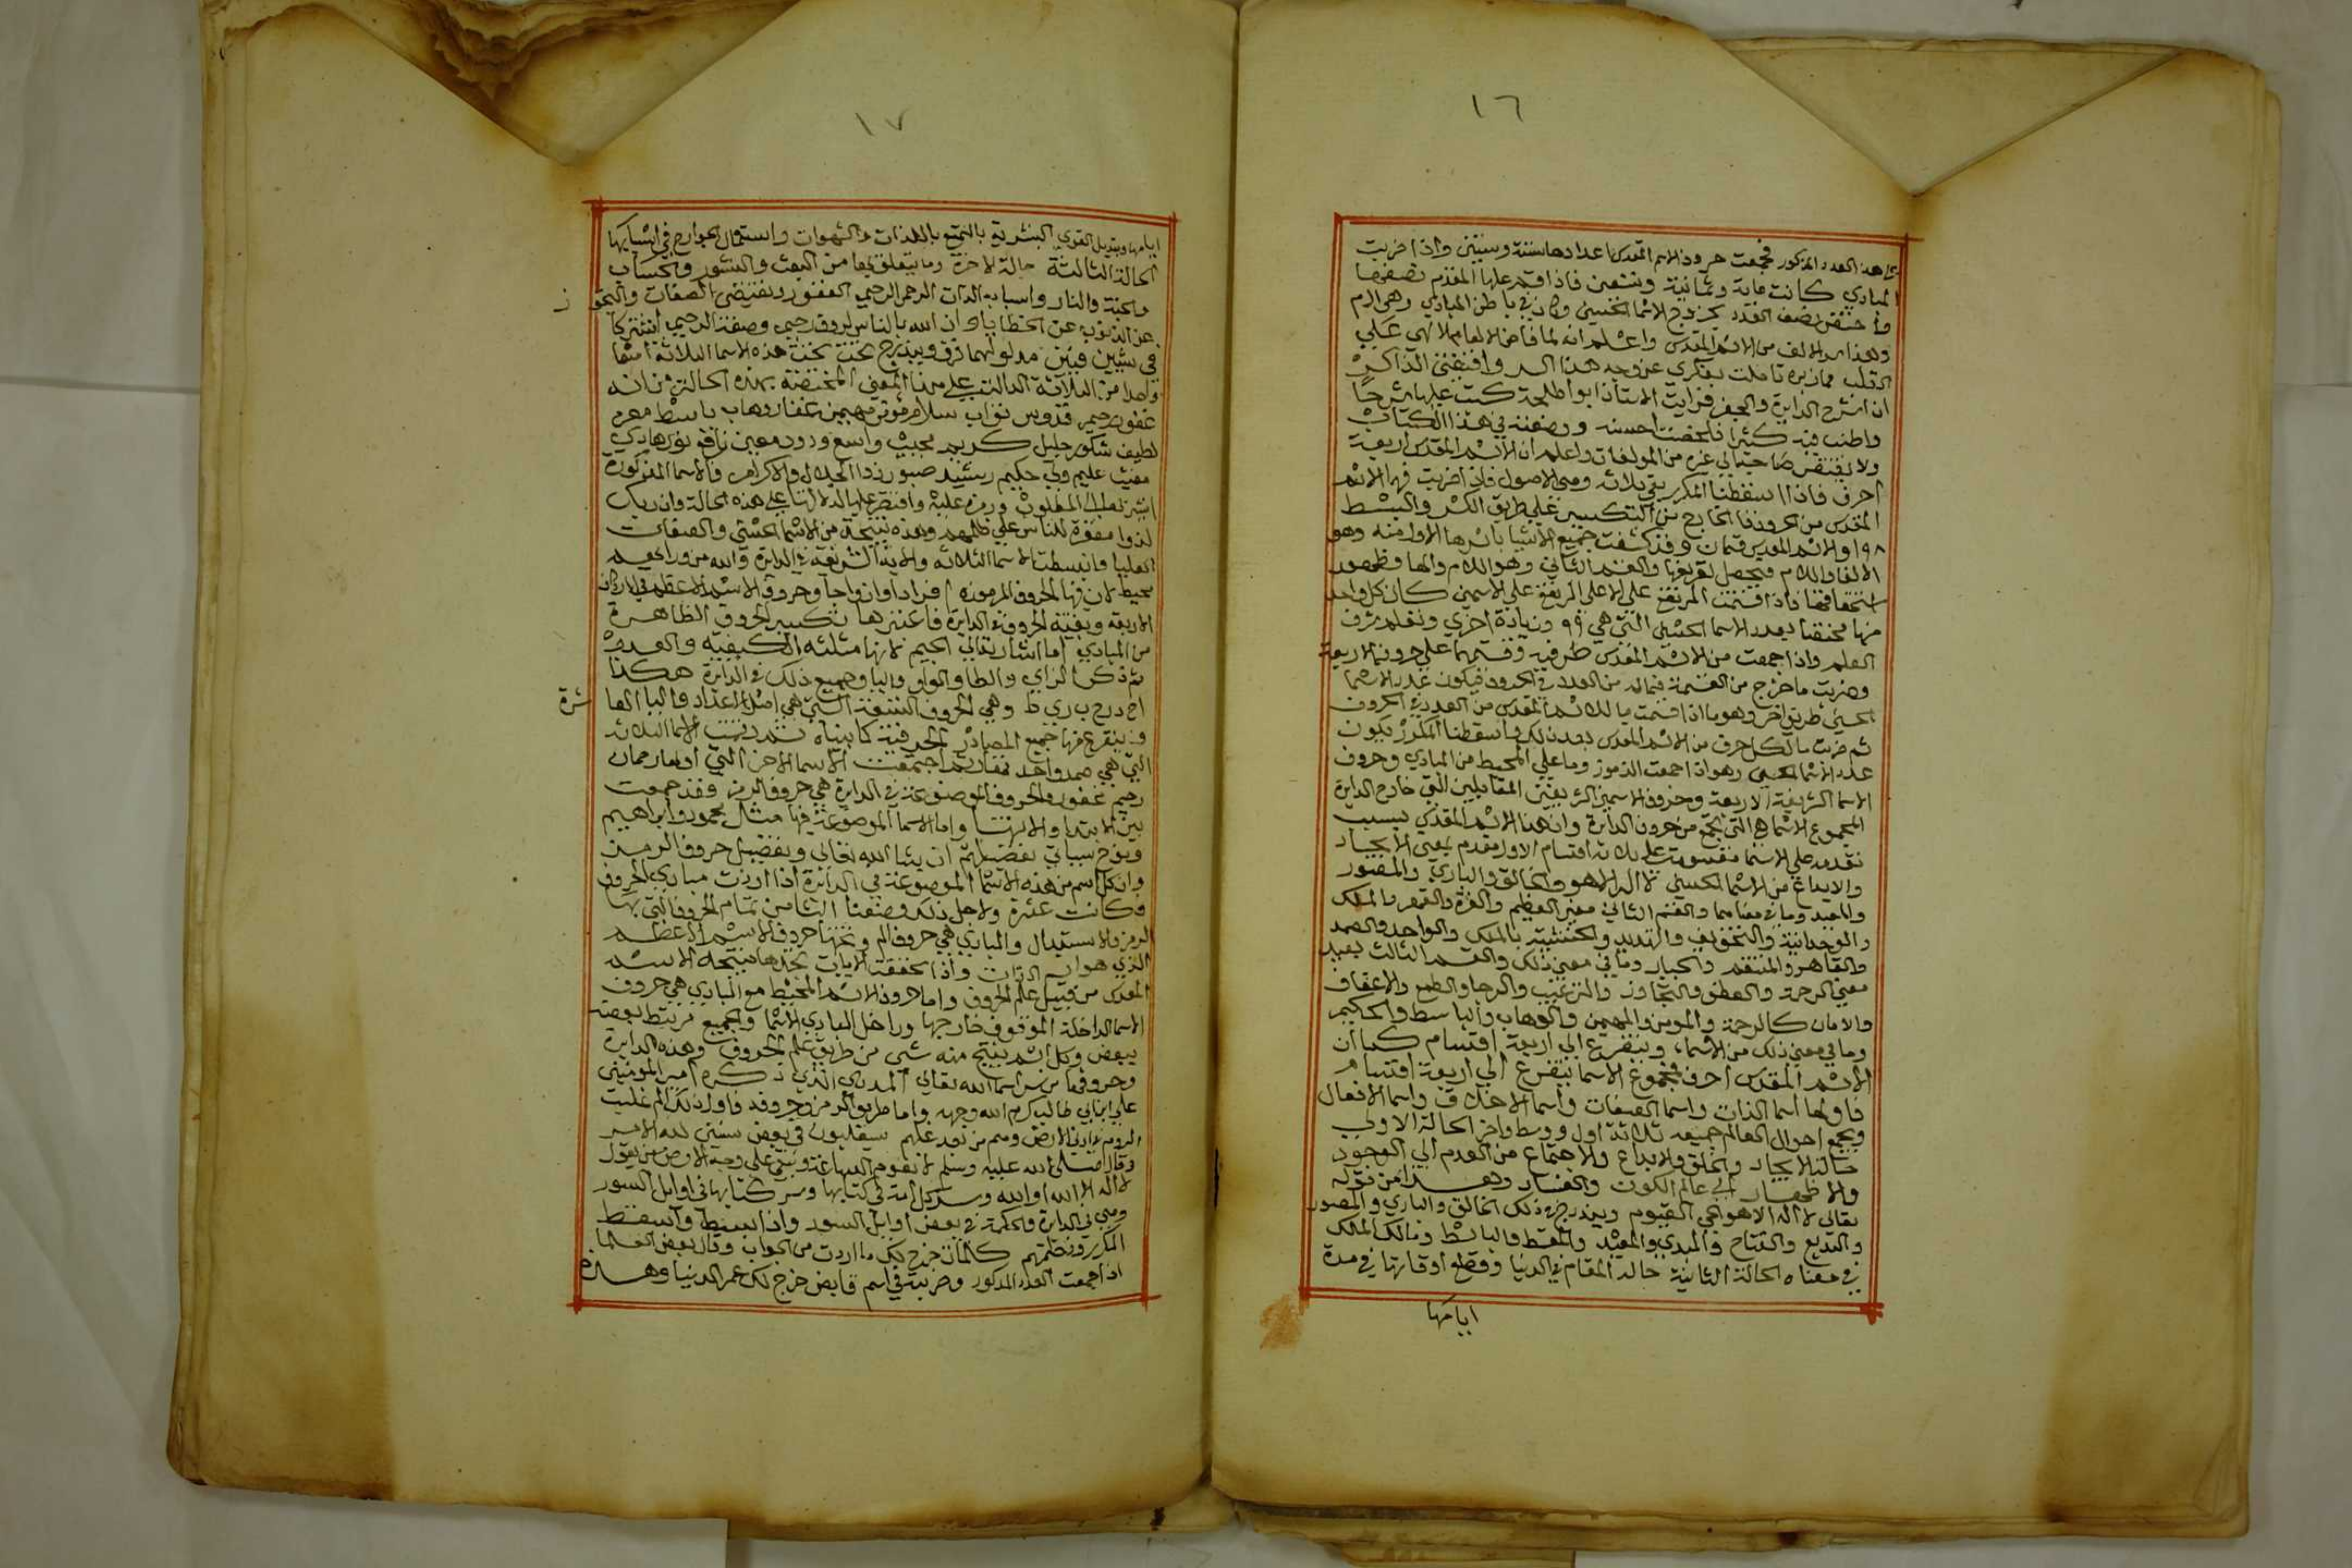 ١٦
هذا العدد المذكور فجمعت حروف الاسم المقدس اعدادها ستة وستين واذا ضربت
المبادي كانت ماية وثمانية وتسعين فاذا قسم عليها المقدم نصفها
نصف العدد يخرج الاسما الحسني وكان في باطن المبادي وهي الزم
وهذا سر الالف من الاسم المقدس واعلم انه لما فاض الالهام الالهي علي
القلب تاملت بفكري عن وجه هذا السر وافتقني الذاكر
ان اشرح الدايرة والجفر فرايت الاستاذ ابو اطلحة كتب عليها شرحا
واطنب فيه كثيرا فلخصت احسنه ووضعته في هذا الكتاب
ولا يفتقر صاحبها الي غيره من المولفات واعلم ان الاسم المقدس اربعة
احرف فاذا اسقطنا المكرر بقي ثلاثة وهي الاصول فاذا ضربت فيها الاسم
المقدس من الحروف الخارج من التكسير علي طريق الكسر والبسط
١٩٨ والاسم المقدس قسمان وقد كشفت جميع الاشيا باسرها الاول منه وهو
الالف واللام فيحصل تعريفها والقسم الثاني وهو اللام والها وظهور
استحقاقها فاذا قسمت المرتفع علي الاعلي المرتفع علي الاسمين كان كل واحد
منها مختصا بعدد الاسما الحسني التي هي ٩٩ وزيادة اخري وتعلم شرف
العلم واذا جمعت من الاسم المقدس طرفيه وقسمتهما علي حروفه الاربعة
وضربت ما خرج من القسمة فيما له من العدد في الحروف فيكون عدد الاسما
الحسني طريق اخر وهو ما اذا قسمت ما للاسم المقدس من العدد الحروف
ثم ضربت ما لكل حرف من الاسم المقدس بعد ذلك واسقطنا المكرر يكون
عدد الاسما الحسني وهو اذا جمعت الرموز وما علي المحيط من المبادي وحروف
الاسما الشريفة الاربعة وحروف الاسمين الشريفين المقابلين التي خارج الدايرة
المجموع الاسما هي التي تجمع من حروف الدايرة وان هذا الاسم المقدس بسبب
تقدمه علي الاسما مقسومة علي ثلاثة اقسام الاول مقدم بمعني الايجاد
والابداع من الاسما الحسني لا اله الا هو والخالق والباري والمصور
والمعيد وما في معناهما والقسم الثاني معني العظيم والعزة والقهر والملك
والوحدانية والتخويف والتهديد والخشية بالملك والواحد والصمد
والقاهر والمنتقم والجبار وما في معني ذلك والقسم الثالث يفيد
معني الرحمة والعطف والتجاوز والترغيب والرجا والطمع والاعفاف
والامان كالرحمة والمومن والمهيمن والوهاب والباسط والحكيم
وما في معني ذلك من الاسماء ويتفرع الي اربعة اقسام كما ان
الاسم المقدس احرف فمجموع الاسما يتفرع الي اربعة اقسام
فاولها اسما الذات واسما الصفات واسما الاخلاق واسما الافعال
ويجمع احوال العالم جميعه ثلاثة اول ووسط واخر الحالة الاولي
حالة الايجاد والخلق والابداع والاجتماع من العدم الي الوجود
والاظهار الي عالم الكون والفساد وهذا من قوله
تعالي لا اله الا هو الحي القيوم ويندرج في ذلك الخالق والباري والمصور
والبديع والفتاح والمبدي والمعيد والمقسط والباسط ومالك الملك
في معناه الحالة الثانية حالة المقام في الدنيا وقطع اوقاتها في مدة
ايامها
١٧
ايامها وتبديل القوي البشرية بالتمتع باللذات والشهوات واستعمال الجوارح في اسبابها
الحالة الثالثة حالة الاخرة وما يتعلق بها من البعث والنشور والحساب
والجنة والنار واسبابه الذات الرحمن الرحيم الغفور ويقتضي الصفات والتجو
ز
عن الذنوب عن الخطايا وان الله بالناس لروف رحيم وصفة الرحيم اشتركا
في شيين فبين مدلولهما فرق ويندرج تحت هذه الاسما الثلاثة اسما
واحدا من الثلاثة الدالة علي هذا المعني المختصة بهذه الحالة من انه
غفور رحيم قدوس تواب سلام مومن مهيمن غفار وهاب باسط معز
لطيف شكور جليل كريم مجيب واسع ودود معين رزاق نور هادي
مغيث عليم ولي حكيم رشيد صبور ذوا الجلال والاكرام فالاسما المذكورة
اشرت بعلك المغلوب ورمز عليه واقتصر عليها لدلالتها علي هذه الحالة وان ربك
لذوا مغفرة للناس علي ظلمهم وهذه نتيجة من الاسما الحسني والصفات
العليا وانبسطت الاسما الثلاثة والاية الشريفة في الدايرة والله من ورايهم
محيط لان فيها الحروف المرموزة افرادا وازواجا وحروف الاسم الاعظم في الاركان
الاربعة وبقية الحروف في الدايرة فاعتبرها بتكسير الحروف الظاهرة
من المبادي اما اشار تعالي الجيم لانها مثلثه الكيفيه والعدد
ثم ذكر الزاي والطا والواو والبا وجميع ذلك في الدايرة هكذا
ا ح د ر ح ب ز ي ط وهي الحروف التسعة التي هي اصل الاعداد والبا القا
شرة
ويتفرع منها جميع المصادر الحرفية كما بيناه ثم رتبت الاسما الثلاثة
التي هي صمد واحد فقاربهم اجتمعت الاسما الاخر التي اولها رحمان
رحيم غفور والحروف الموضوعة في الدايرة هي حروف الرمز وقد جمعت
بين الابتدا والانتها واما الاسما الموضوعة فيها مثل محمود وابراهيم
ونوح سياتي تفضيلهم ان يشا الله تعالي وتفضيل حروف الرمز
وان كل اسم من هذه الاسما الموضوعة في الدايرة اذا اردت مبادي الحروف
فكانت عشرة ولاجل ذلك وضعنا الثامن تمام الحروف التي بها
الرمز والاستبدال والمبادي هي حروف الم وتحتها حروف الاسم الاعظم
الذي هو اسم الذات واذا تحققت الايات تجدها نتيجة الاسم
المقدس من قبيل علم الحروف واما حروف الاسم المحيط مع المبادي هي حروف
الاسما الداخلة الموقوف خارجها وداخل المبادي الاسما والجميع مرتبط بعضه
ببعض وكل اسم ينتج منه شي من طريق علم الحروف وهذه الدايرة
وحروفها من سر اسما الله تعالي المدي الذي ذكره امير المومنين
علي ابن ابي طالب كرم الله وجهه واما طريق الرمز وحروفه فاول ذلك الم غلبت
الروم في ادني الارض وهم من بعد غلبهم سيغلبون في بضع سنين لله الامر
وقال صلي الله عليه وسلم لا تقوم الساعة ويبقي علي وجه الارض من يقول
لا اله الا الله او الله وسر كل امة في كتابها وسر كتابها في اوايل السور
وهي في الدايرة والحكمة في بعض اوايل السور واذا ابسط واسقط
المكرر ونظمتهم كالمات خرج لك ما اردت من الجواب وقال بعض العلما
اذا جمعت العدد المذكور وضربته في اسم قابض خرج لك عمر الدنيا وهذه